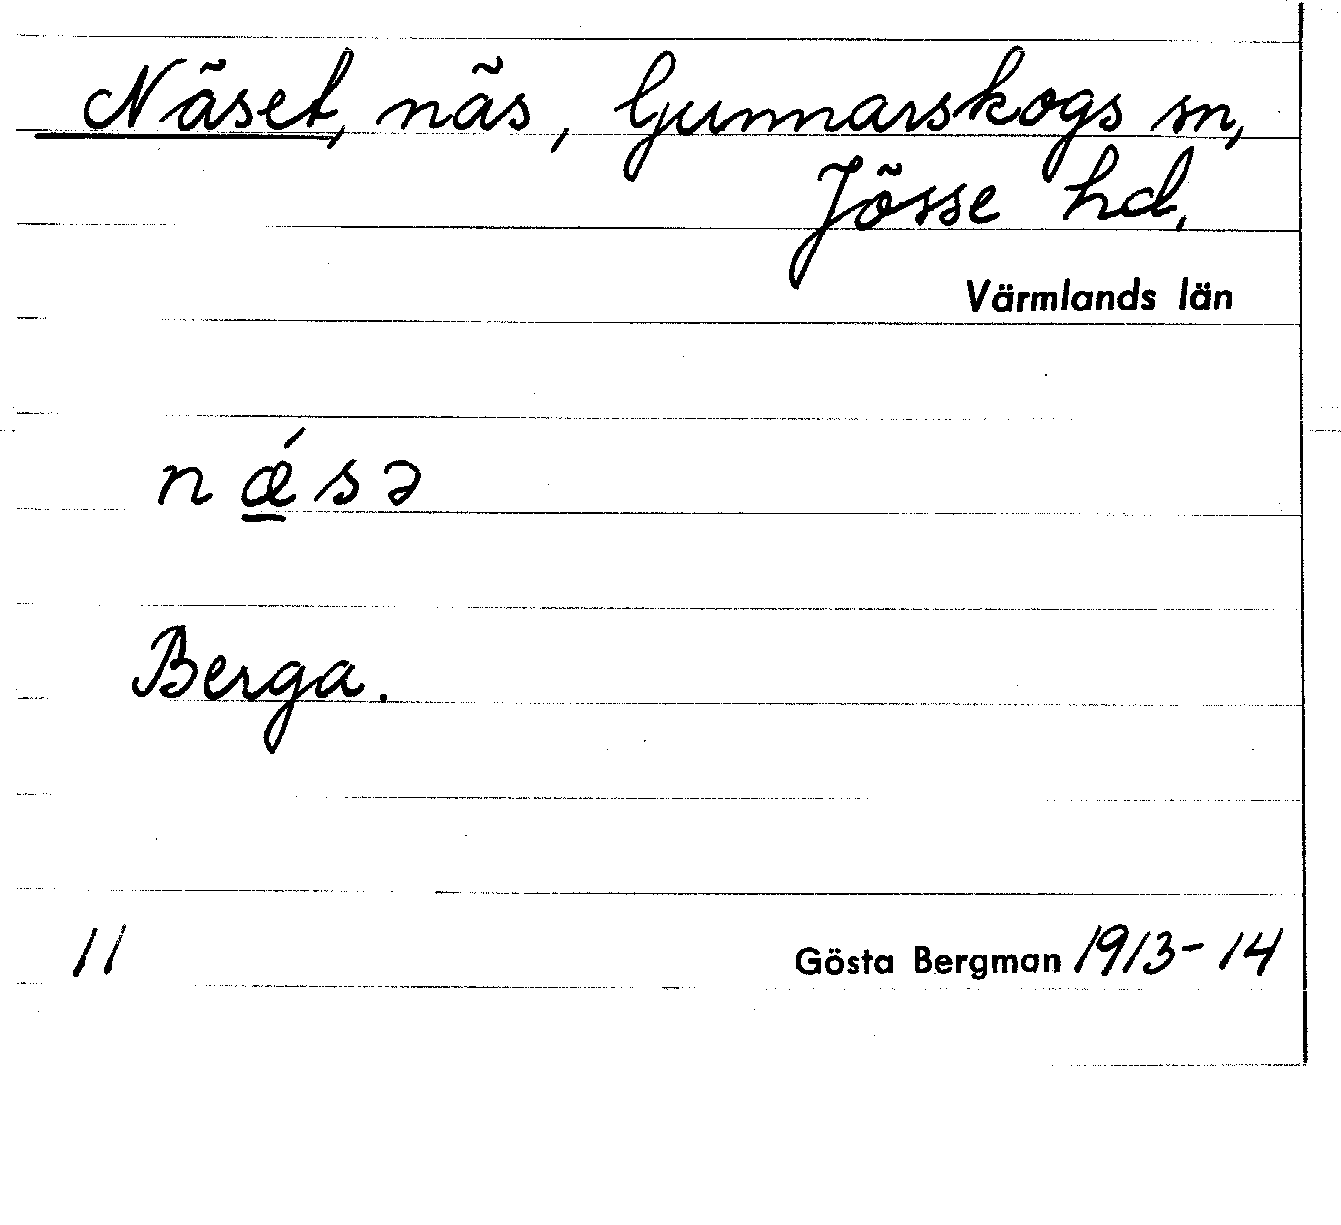 Näset, näs, Gunnarskogs sn,
Jösse hd.
Värmlands län
n ǽ̱ s ə
Berga.
11 Gösta Bergman 1913-14